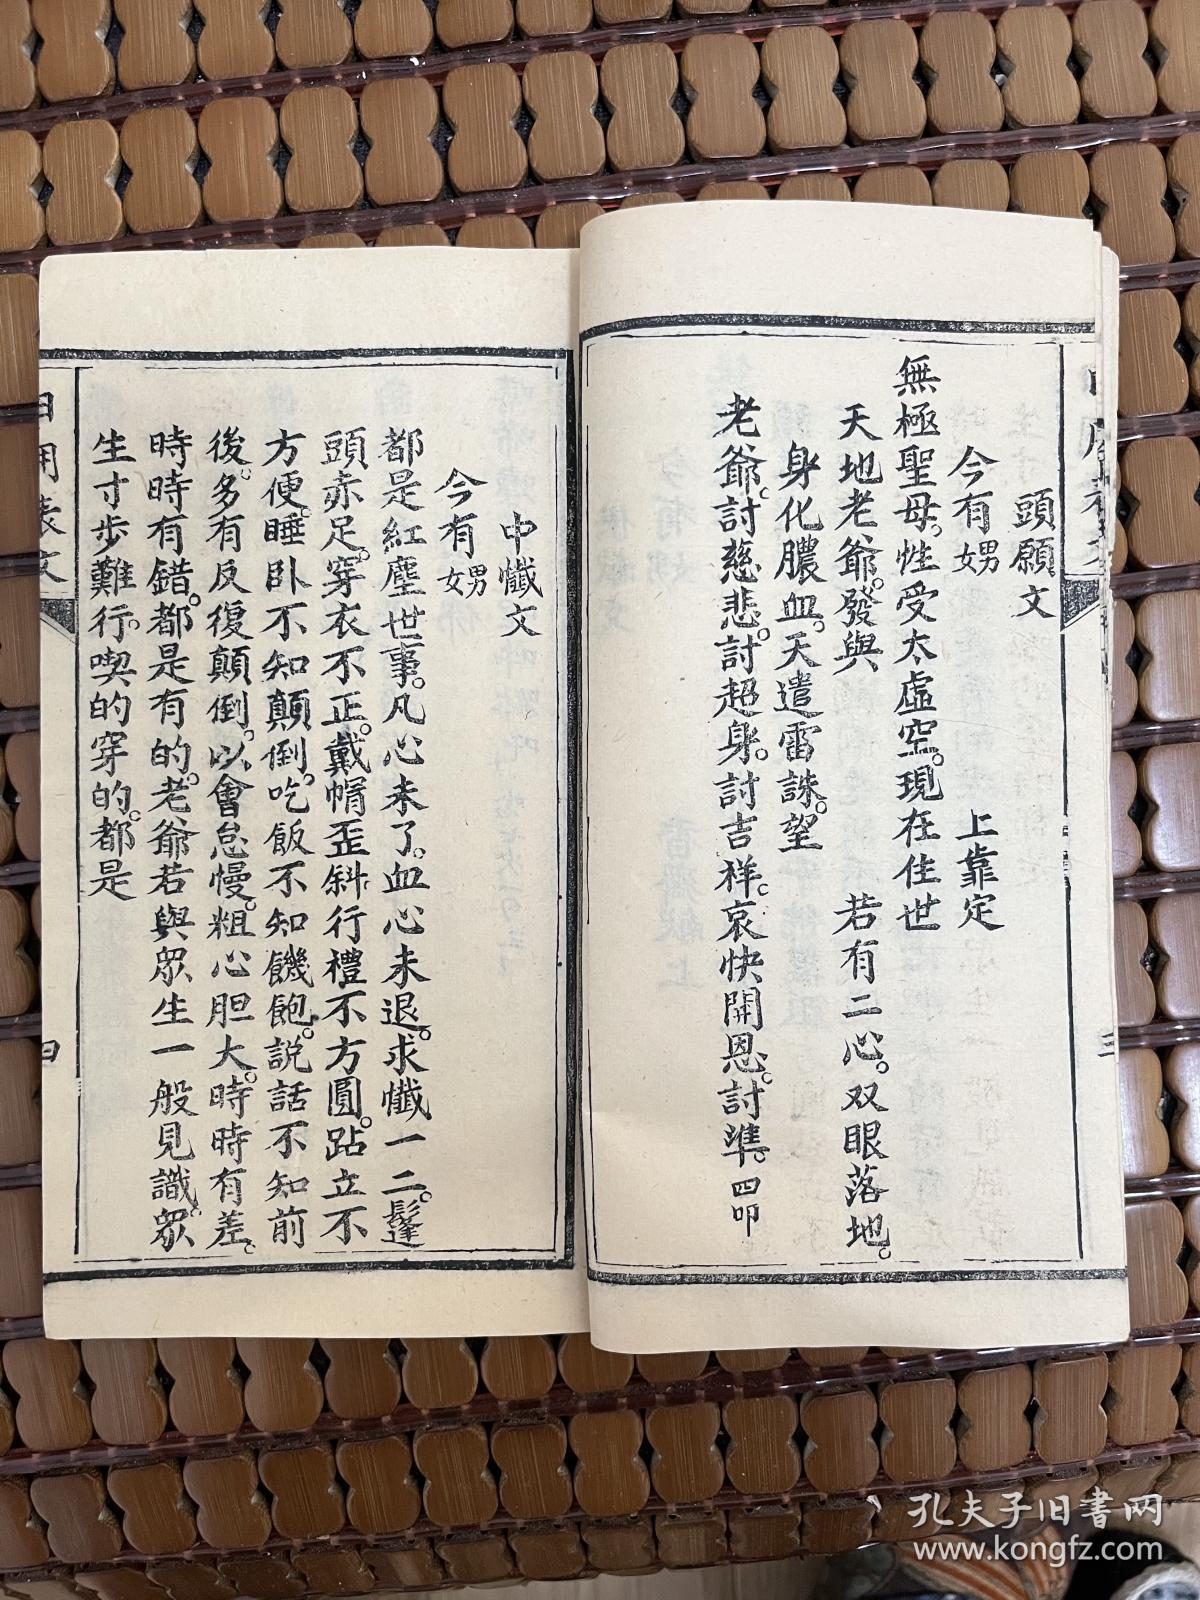 頭願文
今有男女 上靠定
無極聖母。性受太虛空。現在住世
天地老爺。發與 若有二心。双眼落地。
身化膿血。天遣雷誅。望
老爺。討慈悲。討超身。討吉祥。哀快開恩。討準。四叩
三
中懺文
今有男女
都是紅塵世事。凡心未了。血心未退。求懺一二。髼
頭赤足。穿衣不正。戴帽歪斜。行禮不方圓。跕立不
方便。睡卧不知顛倒。吃飯不知饑飽。說話不知前
後。多有反復顛倒。以會怠慢。粗心胆大。時時有差。
時時有錯。都是有的。老爺若與眾生一般見識。眾
生寸步難行。喫的穿的。都是
日用表文
四
孔夫子旧書网
www.kongfz.com